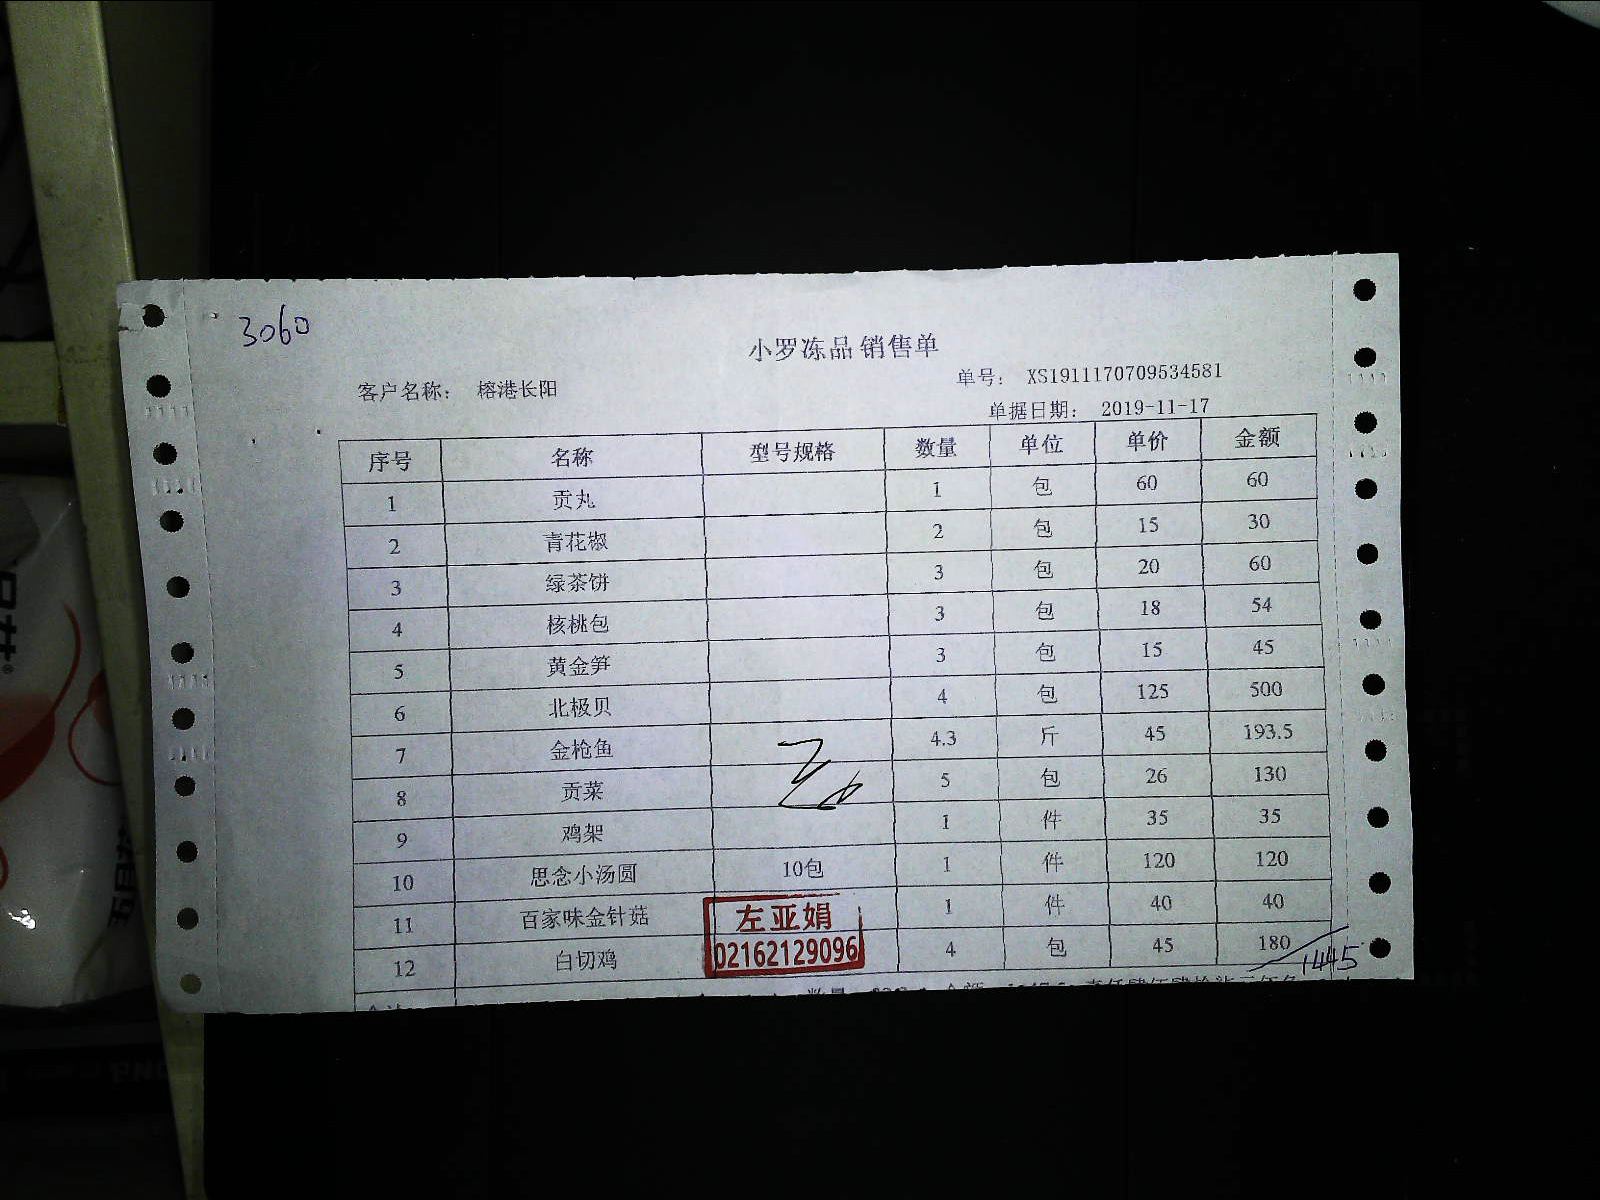 3060
小罗冻品销售单
客户名称： 榕港长阳
单号： XS1911170709534581
单据日期： 2019-11-17
序号 名称 型号规格 数量 单位 单价 金额
1 贡丸 1 包 60 60
2 青花椒 2 包 15 30
3 绿茶饼 3 包 20 60
4 核桃包 3 包 18 54
5 黄金笋 3 包 15 45
6 北极贝 4 包 125 500
7 金枪鱼 4.3 斤 45 193.5
8 贡菜 5 包 26 130
9 鸡架 1 件 35 35
10 思念小汤圆 10包 1 件 120 120
11 百家味金针菇 1 件 40 40
12 白切鸡 4 包 45 180
左亚娟
02162129096
1445